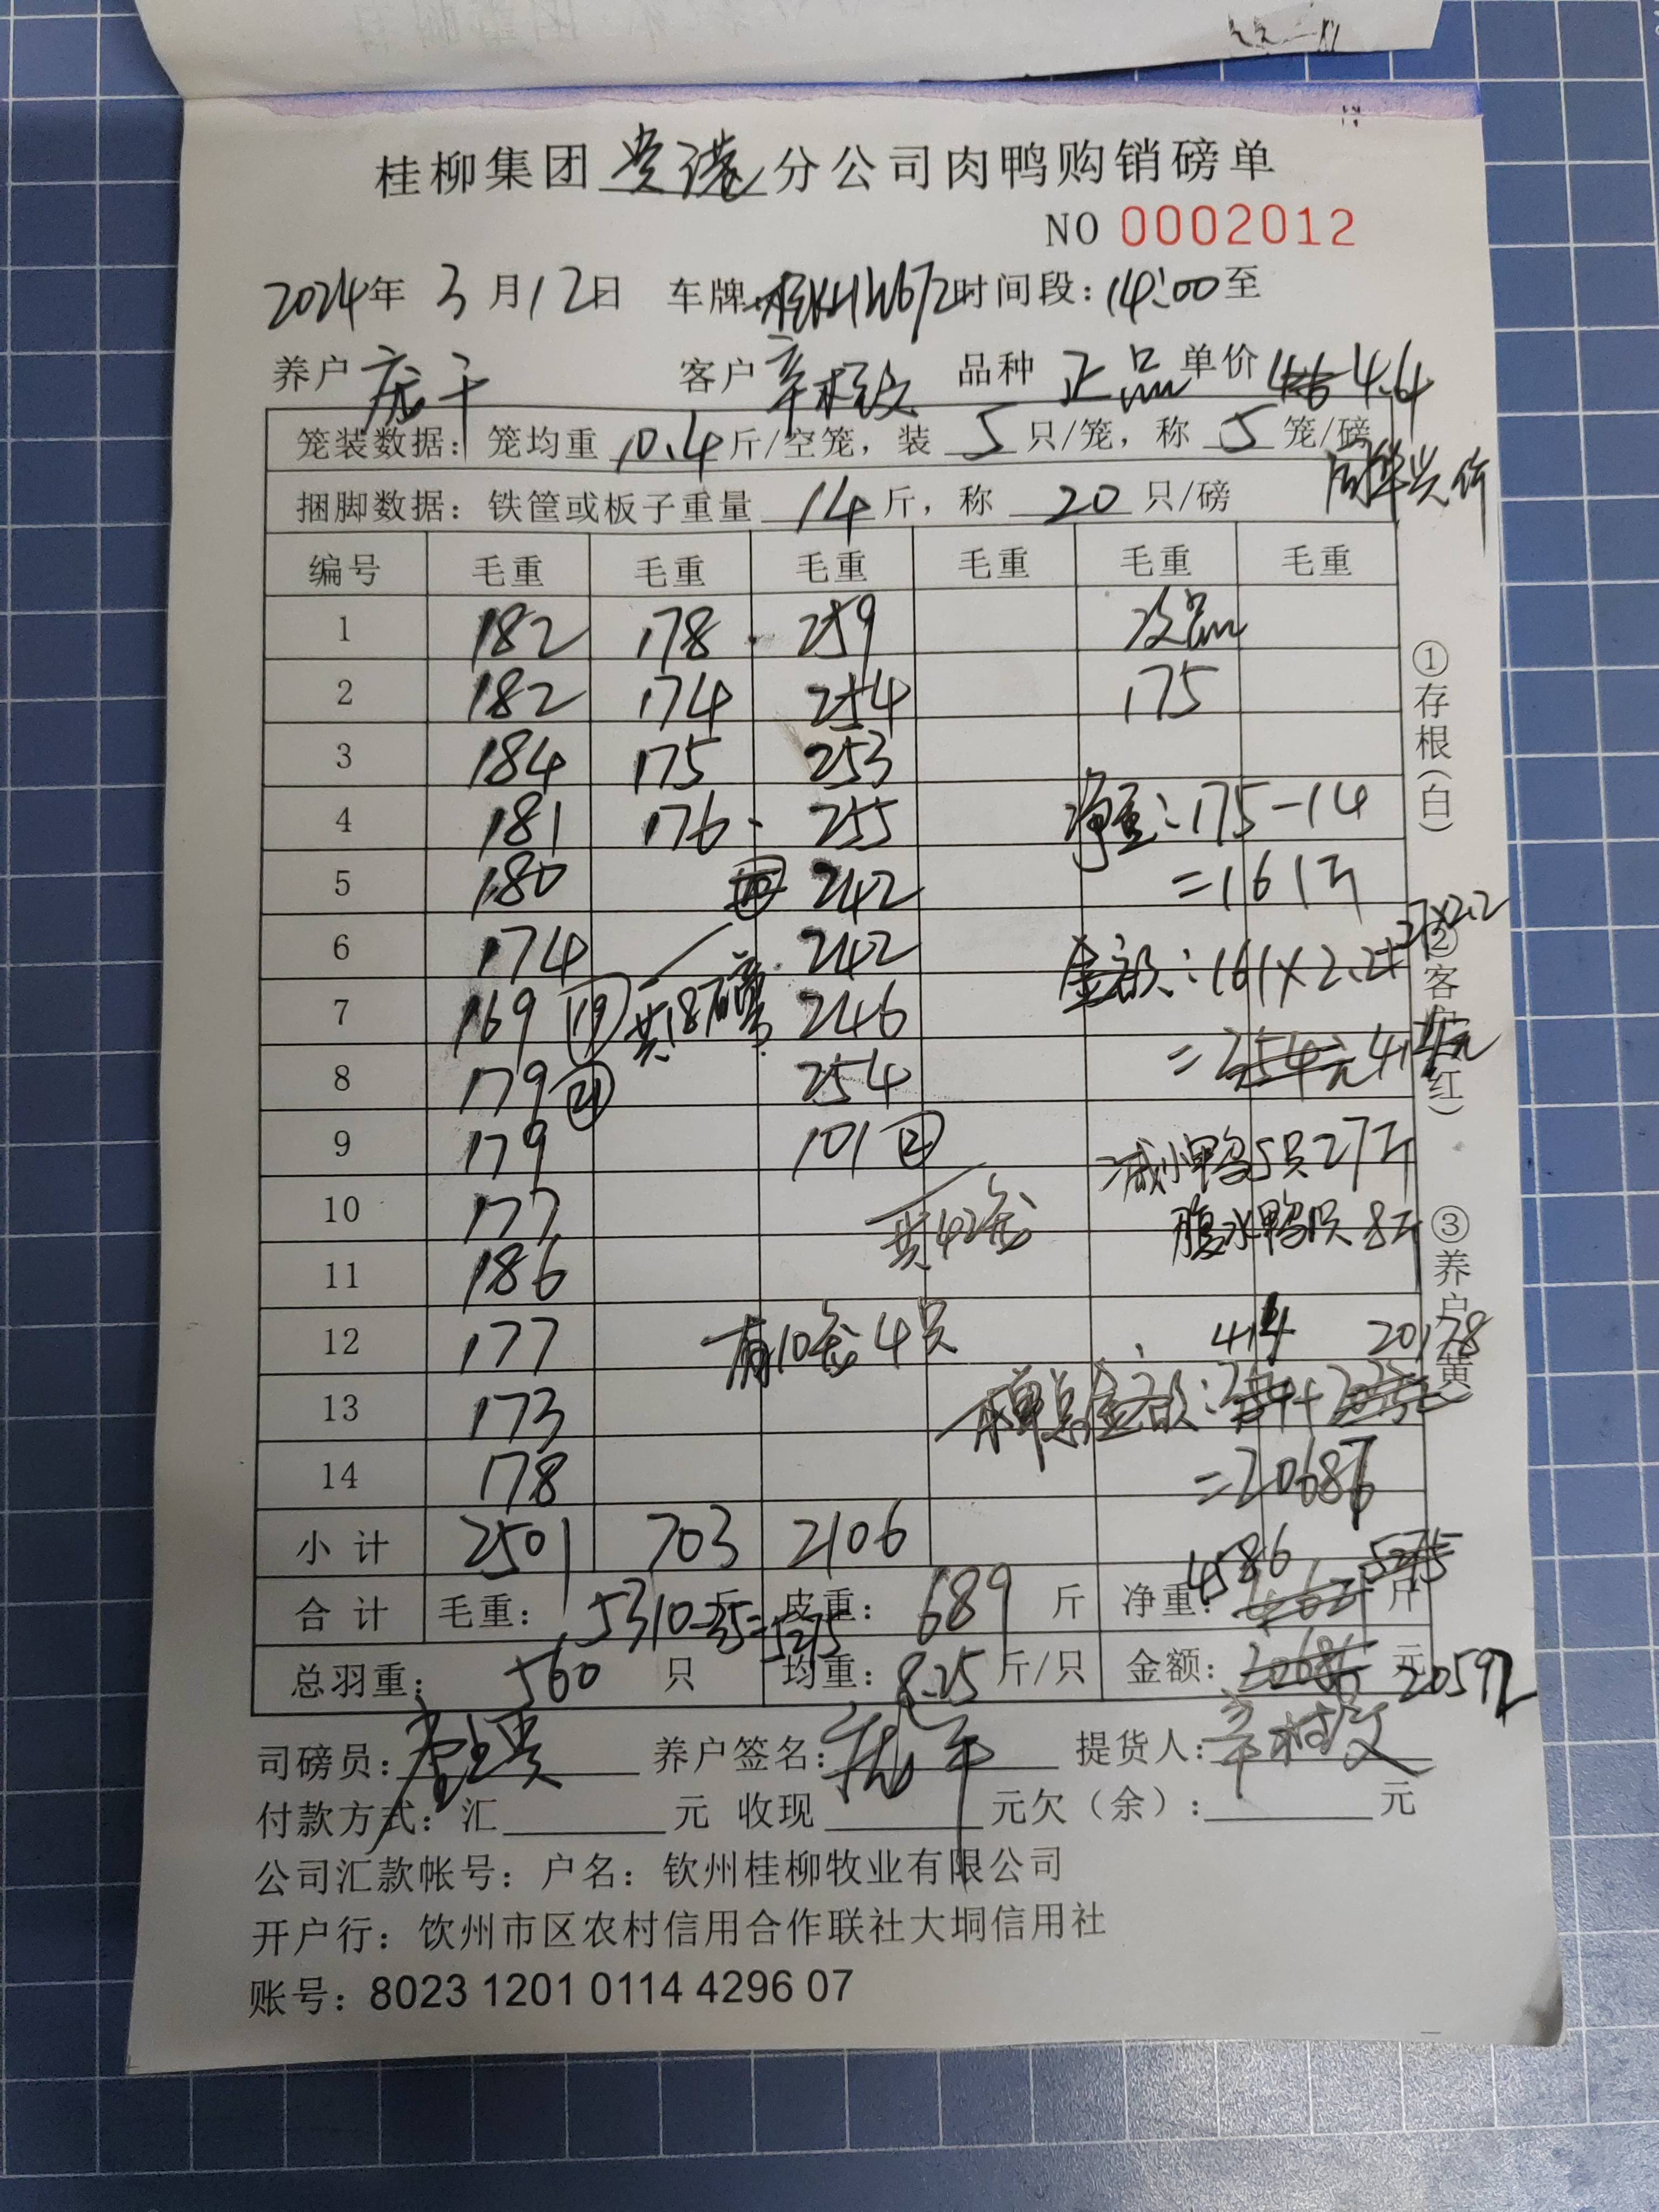 桂柳集团贵港分公司肉鸭购销磅单
NO 0002012
2024年3月12日 车牌: 时间段:14:00至
养户 客户 辛 品种 正品 单价 4.6 4.4
笼装数据: 笼均重 10.4 斤/空笼, 装 5 只/笼, 称 5 笼/磅
捆脚数据: 铁筐或板子重量 14 斤, 称 20 只/磅
编号 毛重 毛重 毛重 毛重 毛重 毛重
1 182 178 259 次品
2 182 174 254 175
3 184 175 253
4 181 176 255 净重:175-14
5 180 242 =161斤
6 174 242 金额:161×2.2+27×2.2
7 169 ⑲ 共18磅 246
8 179 ㉑ 254 =354元
9 179 101 ② 减小鸭5只27斤
10 177 共42笼 腹水鸭1只8斤
11 186
12 177 有10笼4只 414 20178
13 173 本单总金额:
14 178 =20686
小计 2501 703 2106
4586 5275
合计 毛重: 5310-35=5275 斤 皮重: 689 斤 净重: 斤
总羽重: 560 只 均重: 8.25 斤/只 金额: 20686 元 20592
司磅员: 养户签名: 提货人: 辛
付款方式: 汇 元 收现 元欠(余): 元
公司汇款帐号: 户名: 钦州桂柳牧业有限公司
开户行: 钦州市区农村信用合作联社大垌信用社
账号: 8023 1201 0114 4296 07
①存根(白)
②客户(红)
③养户(黄)